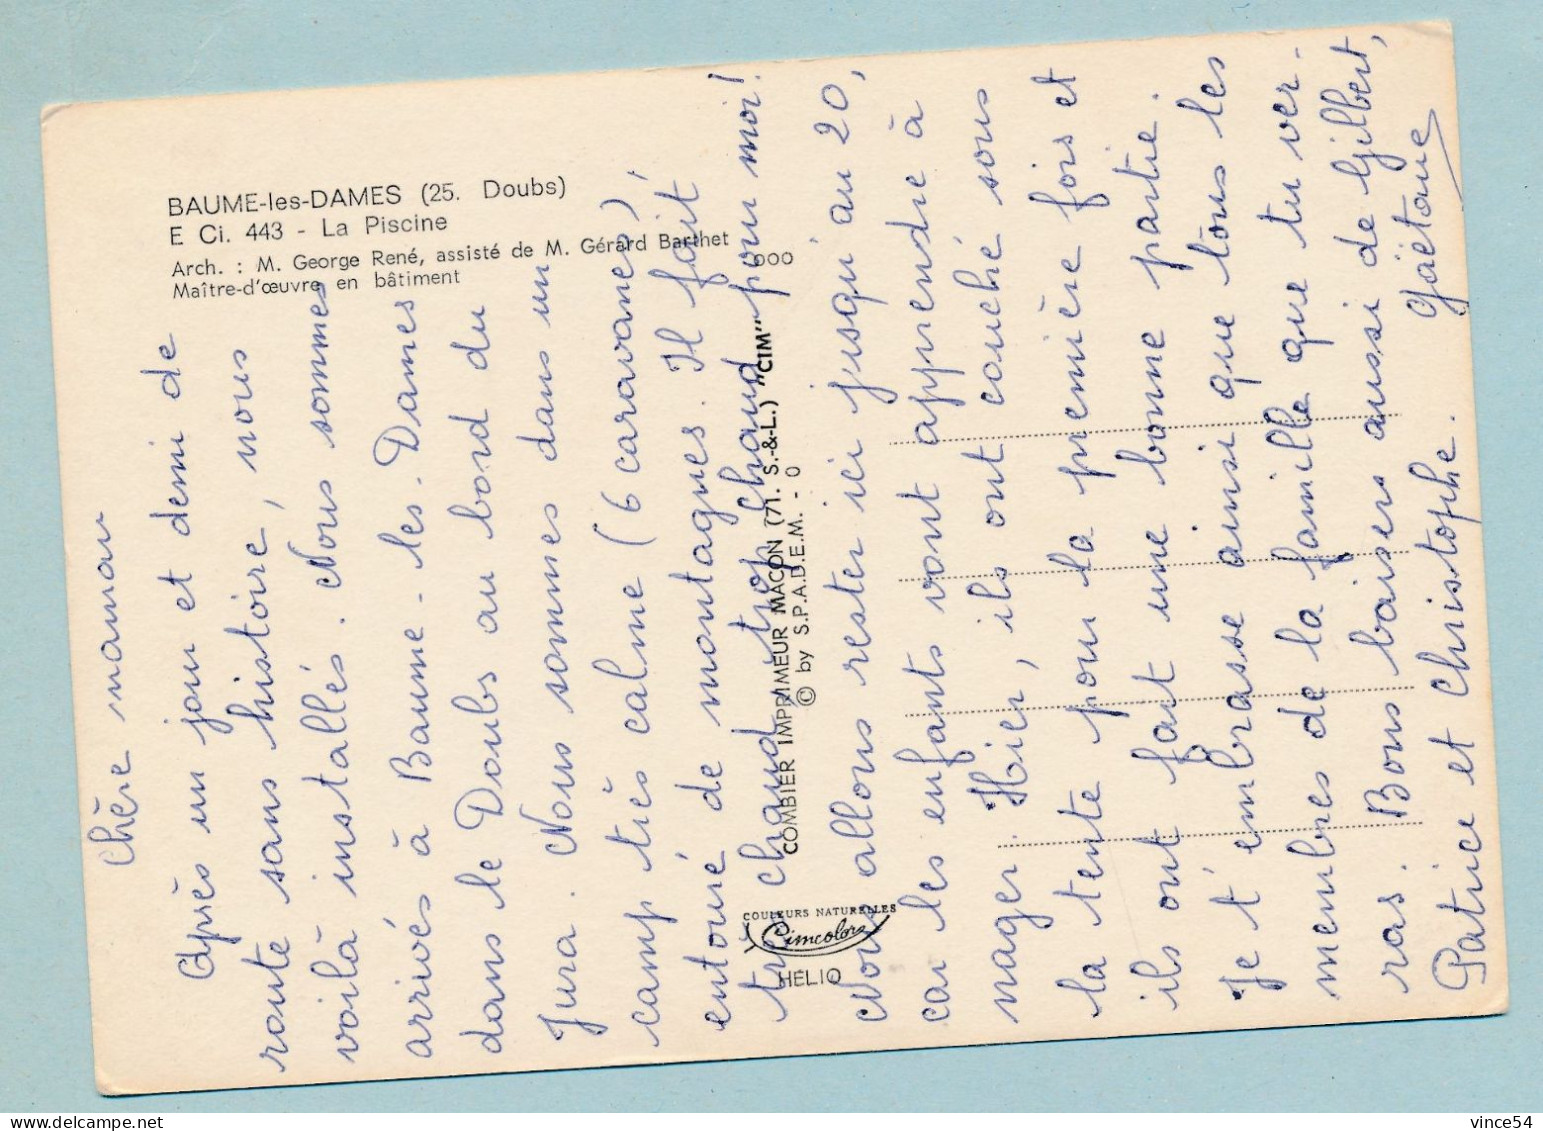 BAUME-les-DAMES (25. Doubs)
E Ci. 443 - La Piscine
Arch. : M. George René, assisté de M. Gérard Barthet
Maître-d'œuvre en bâtiment
Chère maman
Après un jour et demi de
route sans histoire, nous
voilà installés. Nous sommes
arrivés à Baume-les-Dames
dans le Doubs au bord du
Jura. Nous sommes dans un
camp très calme (6 caravanes),
entouré de montagnes. Il fait
très chaud, trop chaud pour moi!
Nous allons rester ici jusqu'au 20,
car les enfants vont apprendre à
nager. Hier, ils ont couché sous
la tente pour la première fois et
ils ont fait une bonne partie.
Je t'embrasse ainsi que tous les
membres de la famille que tu ver-
ras. Bons baisers aussi de Gilbert,
Patrice et Christophe. Gaëtane
COMBIER IMPRIMEUR MACON (71. S.-&-L.) "CIM"
© by S.P.A.D.E.M. - 0
COULEURS NATURELLES
Cimcolors
HELIO
vince54